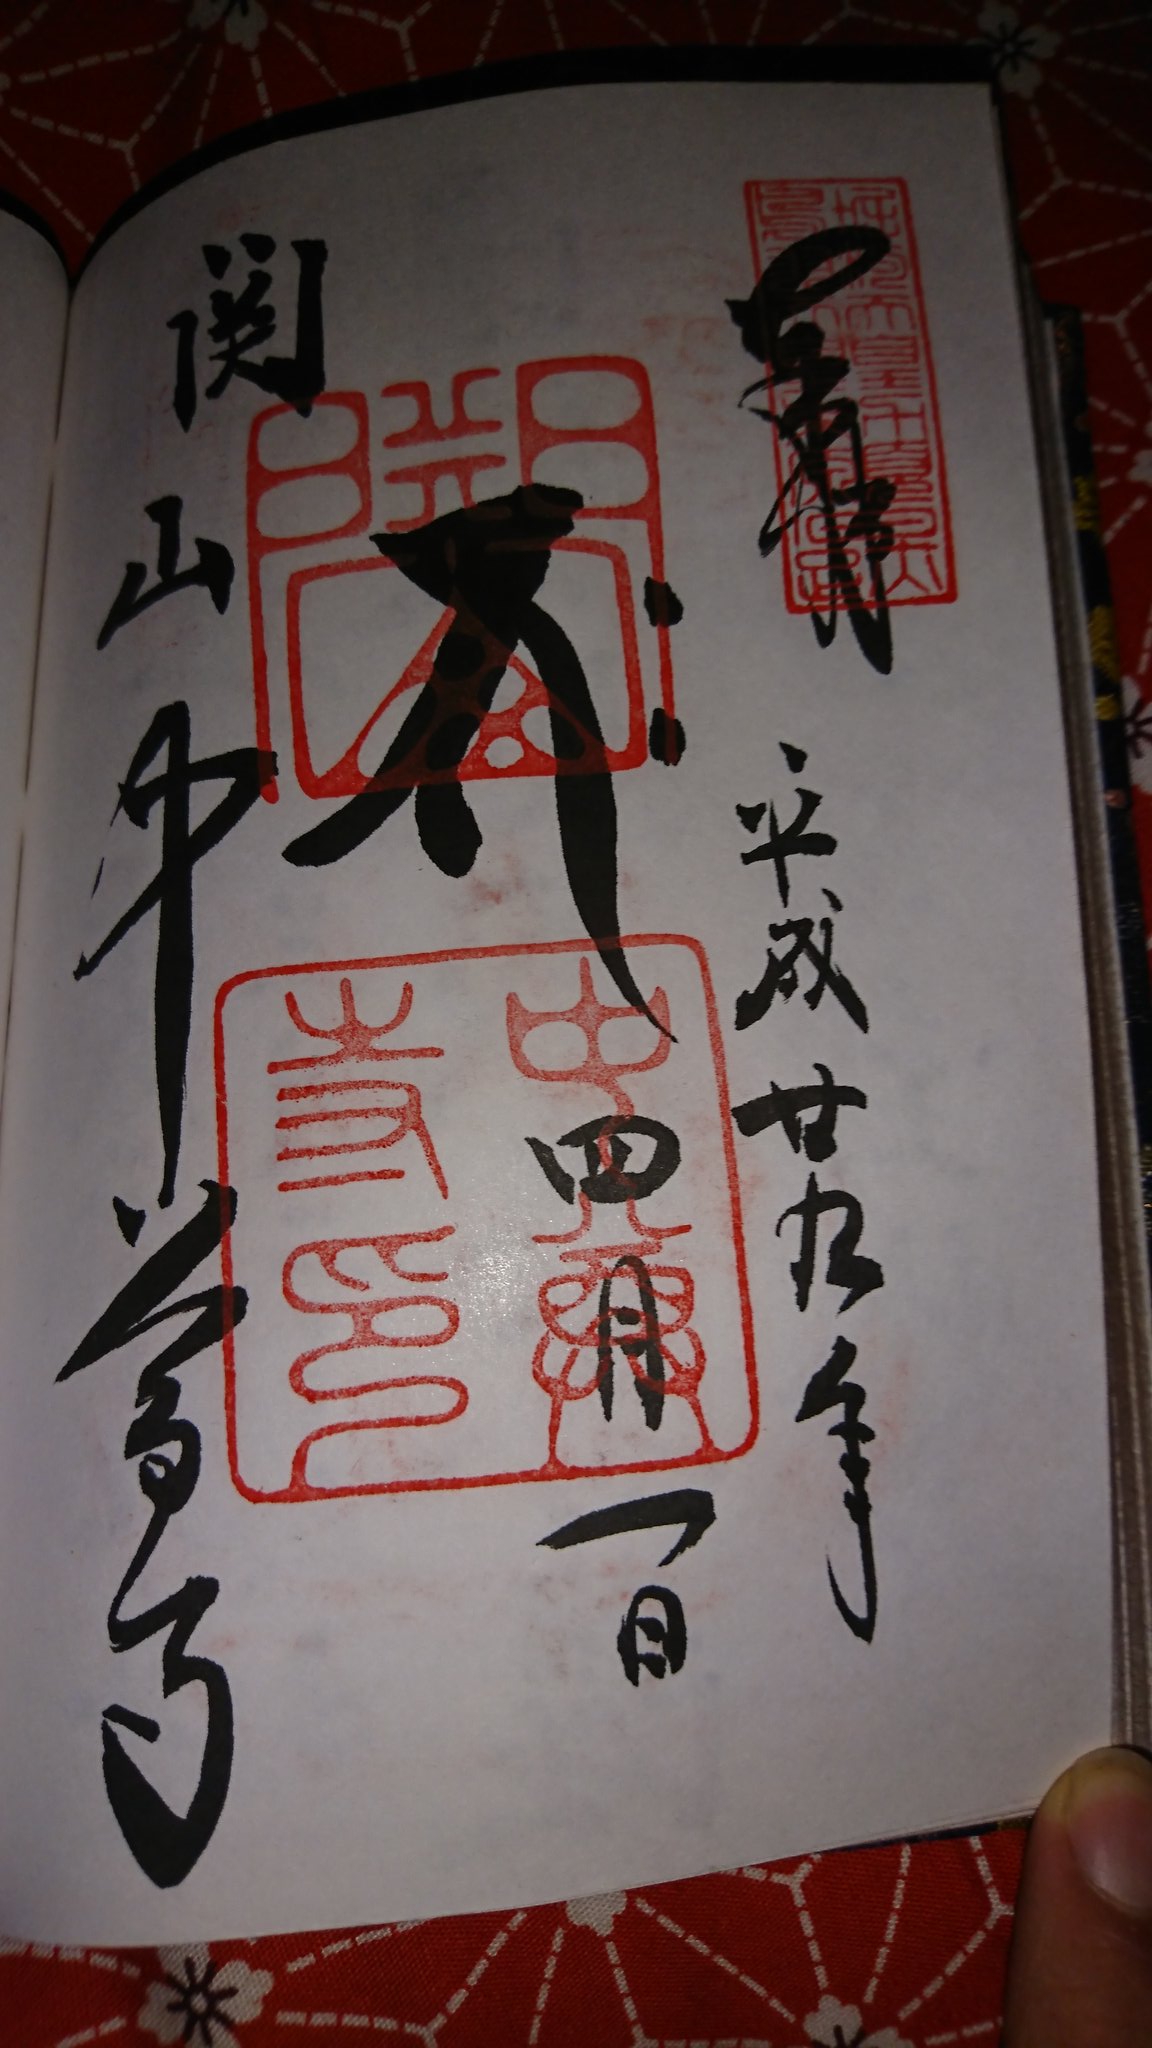 奉拝
平成廿九年
四月一日
關山
中尊
寺印
関山中尊寺